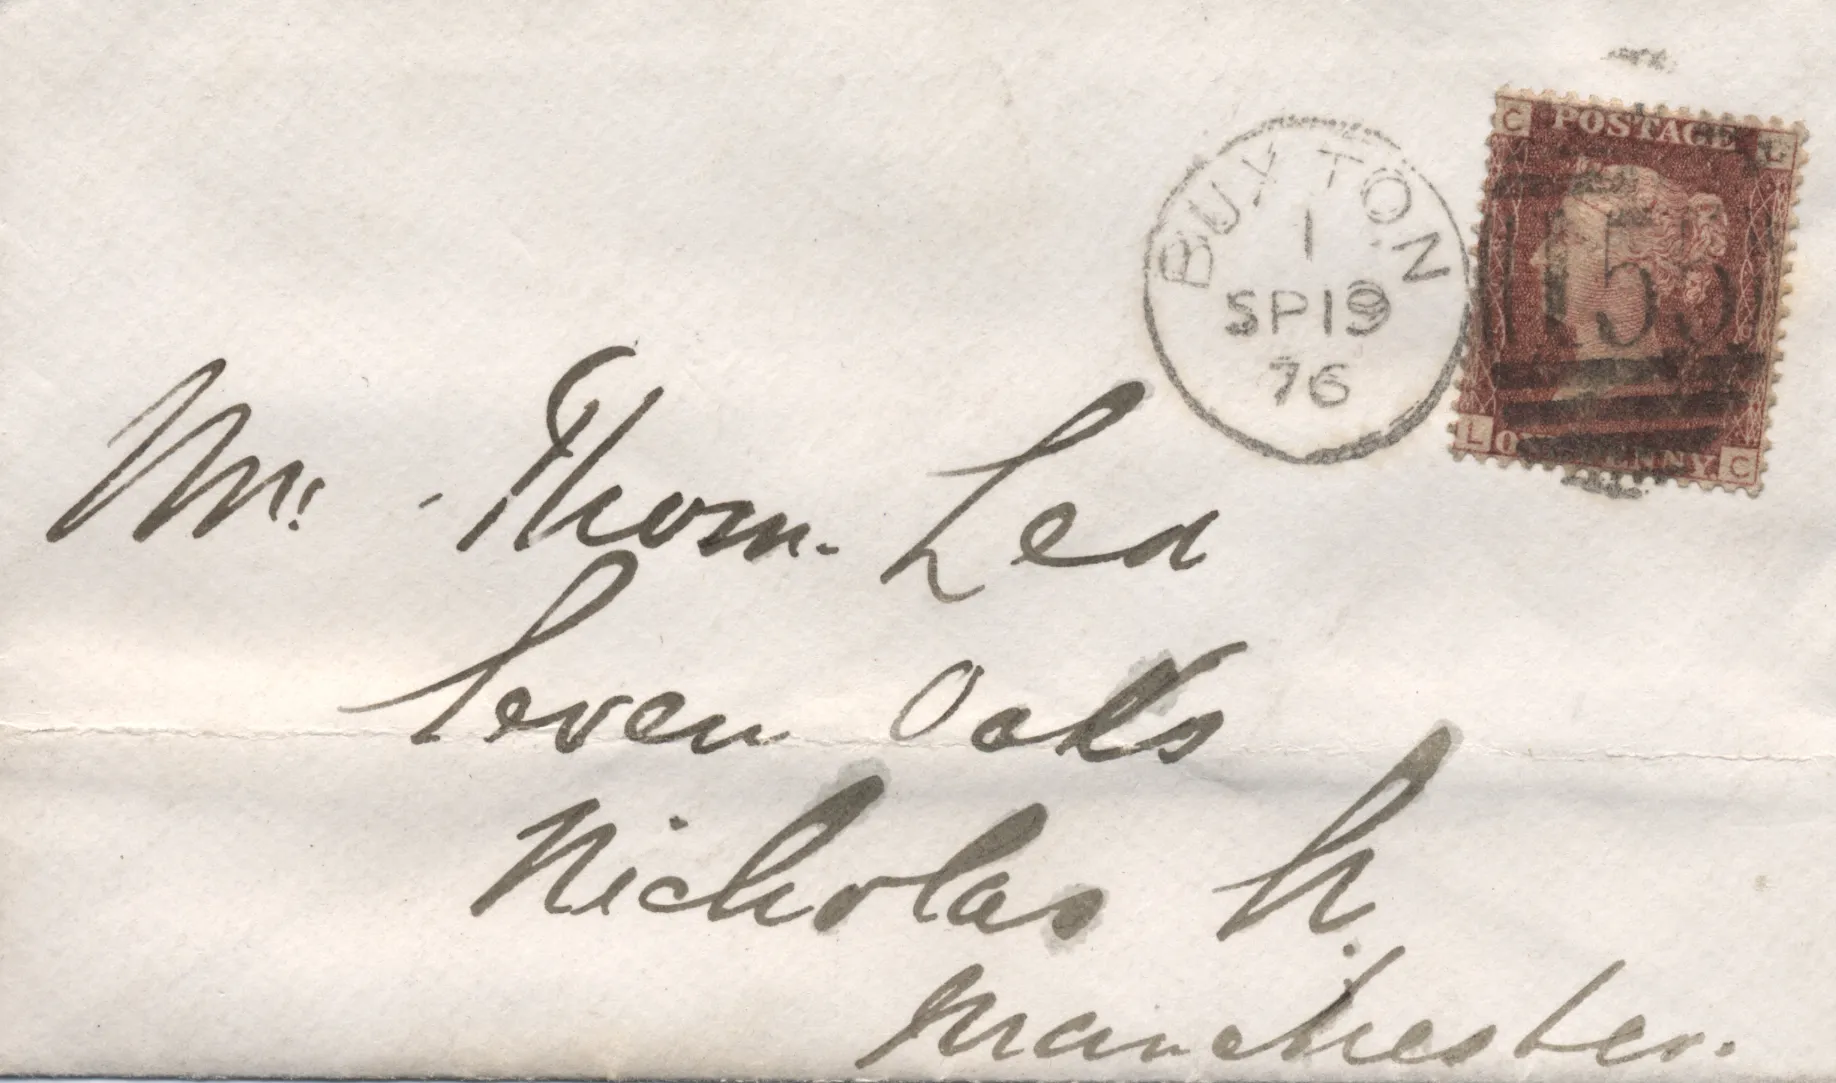 BUXTON
1
SP 19
76
C POSTAGE L
155
L ONE PENNY C
Mr. Thom. Lea
Seven Oaks
Nicholas St.
Manchester.